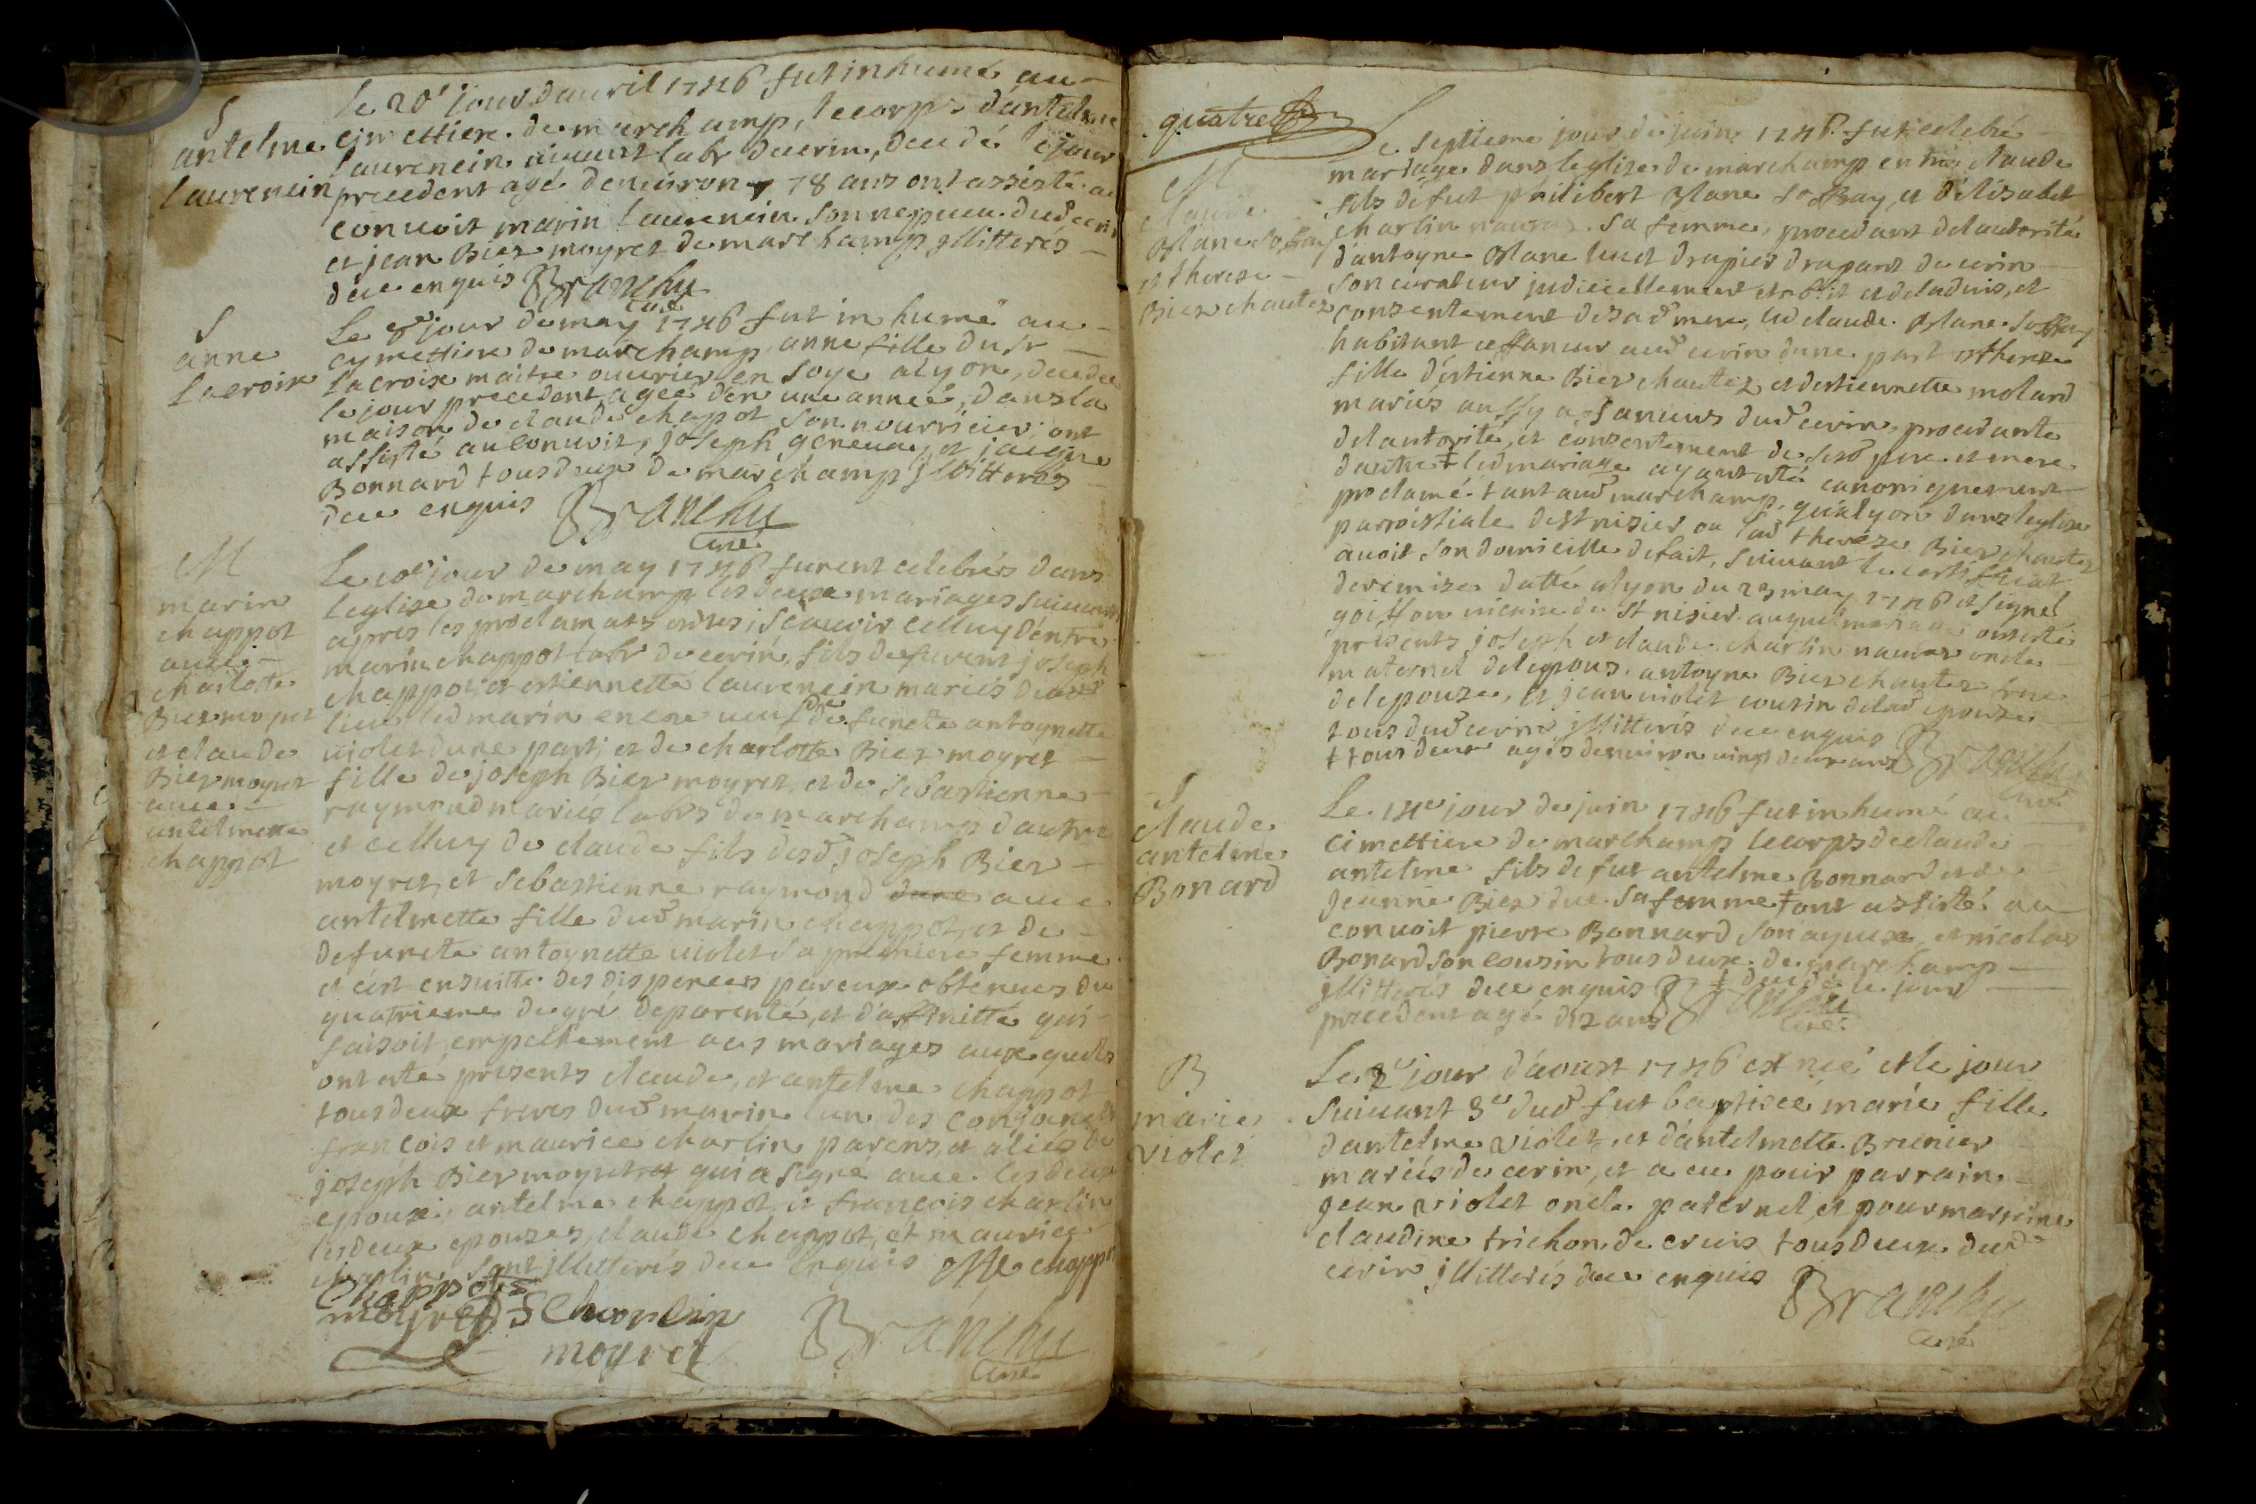 S
antelme
laurencin
le 20e jour davril 1746 fut inhumé au
cimettiere de marchamp, le corps d'antelme
laurencin vivant labr de cerin, decedé le jour
precedent agé denviron 78 ans ont assisté au
convoit marin laurencin son nepveu dud cerin
et jean Bier moyret de marchamp jllitterés
de ce enquis Branchu
curé
S
anne
Lacroix
Le 8e jour de may 1746 fut inhumé au
cymettiere de marchamp anne fille du sr
Lacroix maitre ouvrier en soye a lyon, decedée
le jour precedent, agée d'en une année, dans la
maison de claude chapot son nourricier; ont
assisté au convoit, joseph genevay et jacque
Bonnard tous deux de marchamp jllitterés
de ce enquis Branchu
curé
M
marin
chappot
avec
charlotte
Bier moyret
et claude
Bier moyret
avec
antelmette
chappot
Le 10e jour de may 1746 furent celebrés dans
leglise de marchamp les deux mariages suivants
apres les proclamats
marin chappot labr de cerin, fils de furent joseph
chappot, et estiennette laurencin mariés dud
lieu led marin encore veuf de functe antoynette
violet dune part; et de charlotte Bier moyret
fille de joseph Bier moyret, et de sebastienne
raymond mariés labrs de marchamp d'autre
et celluy de claude fils desd joseph Bier
moyret, et sebastienne raymond dune avec
antelmette fille dud marin chappot, et de
defuncte antoynette violet sa premiere femme
et c'est ensuitte des dispences par eux obtenues du
quatrieme degré de parenté, et d'affinitté qui
faisoit empechement a ces mariages aux quels
ont esté présents claude, et antelme chappot
tous deux freres dud marin lun des conjoncts
françois et maurice charlin parens, et aliés de
joseph Bier moyret et qui a signé avec les deux
epoux; antelme chappot, et françois charlin
les deux epouzes, claude chappot, et maurice
charlin sont jllitterés de ce enquis chappot
Chappot
moyret F Charlin
moyret Branchu
curé
quatre
M
claude
Blanc
et therese
Bier chautez
Le septieme jour de juin 1746 fut celebré
mariage dans leglize de marchamp entre claude
fils de fut philibert Blanc et d'élisabet
charlin sa femme, procedant de l'autorité
d'antoyne Blanc drapier drapant de cerin
son curateur et de l'advis, et
consentement de sad mere, led claude Blanc
habitant aud cerin dune part et therese
fille d'estienne Bier chautez et destiennette molard
mariés aussy dud cerin, procedante
de l'autorité, et consentement de sesd pere et mere
d'autre ‡ led mariage ayant esté canoniquement
proclamé tant aud marchamp, qu'a lyon dans leglize
parroissiale de st nisier ou lad therese Bier chautez
avoit son domicille de fait, suivant le certificat
de remize datté a lyon du 29 may 1746 et signé
vicaire de st nisier auquel mariage ont esté
présents joseph et claude charlin oncle
maternel de lepoux, antoyne Bier chautez frere
de lepouze, et jean violet cousin de lad epouze
tous dud cerin jllitterés de ce enquis
‡ tous deux agés denviron vingt deux ans Branchu
curé
S
claude
antelme
Bonard
Le 14e jour de juin 1746 fut inhumé au
cimettiere de marchamp le corps de claude
antelme fils de fut antelme Bonnard et de
jeanne Bier sa femme ‡ ont assisté au
convoit pierre Bonnard son ayeux, et nicolas
Bonard son cousin tous deux de marchamp
jllitterés de ce enquis ‡ decedé le jour
precedent agé d 2 ans Branchu
curé
B
marie
violet
Le 2e jour d'aoust 1746 est née et le jour
suivant 3e dud fut baptisée marie fille
dantelme violet, et d'antelmette Brunier
mariés de cerin, et a eu pour parrain
jean violet oncle paternel, et pour marraine
claudine trichon de cruis tous deux dud
cerin jllitterés de ce enquis Branchu
curé